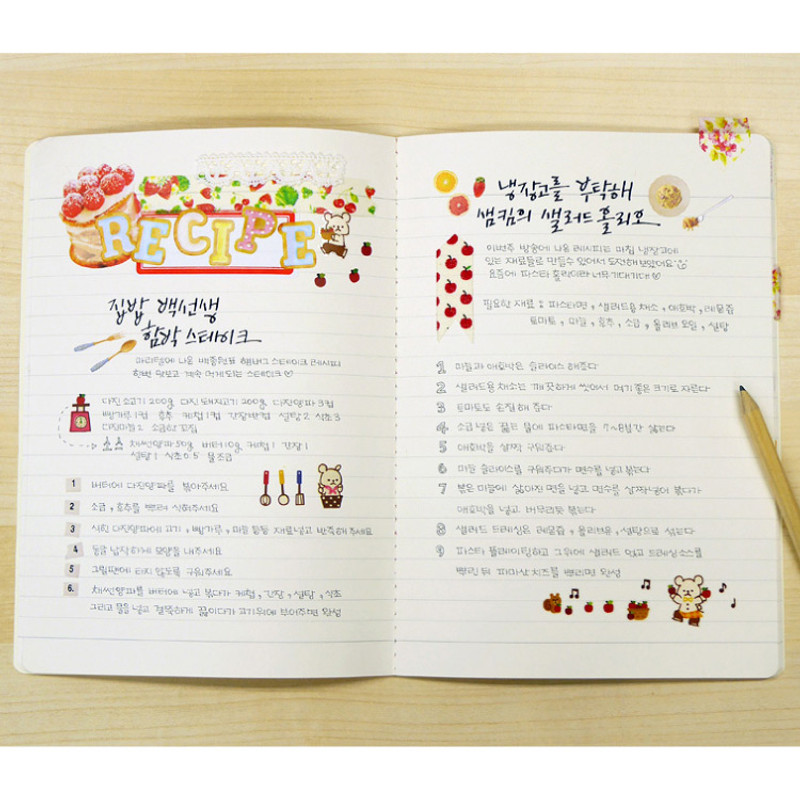 RECIPE
집밥 백선생
함박 스테이크
파리텔에 나온 백종원표 햄버그 스테이크 레시피
한번 맛보고 계속 먹게되는 스테이크♡
다진소고기 200g 다진 돼지고기 200g 다진양파 3컵
빵가루 1컵 후추 케찹 1컵 간장반컵 설탕 2 식초 3
다진마늘 1 소금한꼬집
소스 채썬양파 50g 버터 10g 케찹 1 간장 1
설탕 1 식초 0.5 물조금
1 버터에 다진양파를 볶아주세요
2 소금, 후추를 뿌려 식혀주세요
3 식힌 다진양파에 고기, 빵가루, 마늘 등등 재료넣고 반죽해주세요
4 둥글 납작하게 모양을 내주세요
5 그릴팬에 타지 않도록 구워주세요
6. 채썬양파를 버터에 넣고 볶다가 케찹, 간장, 설탕, 식초
그리고 물을 넣고 걸쭉하게 끓이다가 고기위에 부어주면 완성
냉장고를 부탁해
샘킴의 샐러드 홀리오
이번주 방송에 나온 레시피는 마침 냉장고에
있는 재료들로 만들수 있어서 도전해보았어요
요즘에 파스타 홀릭이라 너무 기대기대♡
필요한 재료 : 파스타면, 샐러드용 채소, 애호박, 레몬즙
토마토, 마늘, 후추, 소금, 올리브 오일, 설탕
1 마늘과 애호박은 슬라이스 해준다
2 샐러드용 채소는 깨끗하게 씻어서 먹기 좋은 크기로 자른다
3 토마토도 손질해 준다
4 소금 넣은 끓은 물에 파스타면을 7~8분간 삶는다
5 애호박을 살짝 구워준다
6 마늘 슬라이스를 구워주다가 면수를 넣고 볶는다
7 볶은 마늘에 삶아진 면을 넣고 면수를 살짝 넣어 볶다가
애호박을 넣고 버무리듯 볶는다
8 샐러드 드레싱은 레몬즙, 올리브유, 설탕으로 섞는다
9 파스타 플레이팅하고 그위에 샐러드 얹고 드레싱소스를
뿌린 뒤 파마산 치즈를 뿌리면 완성